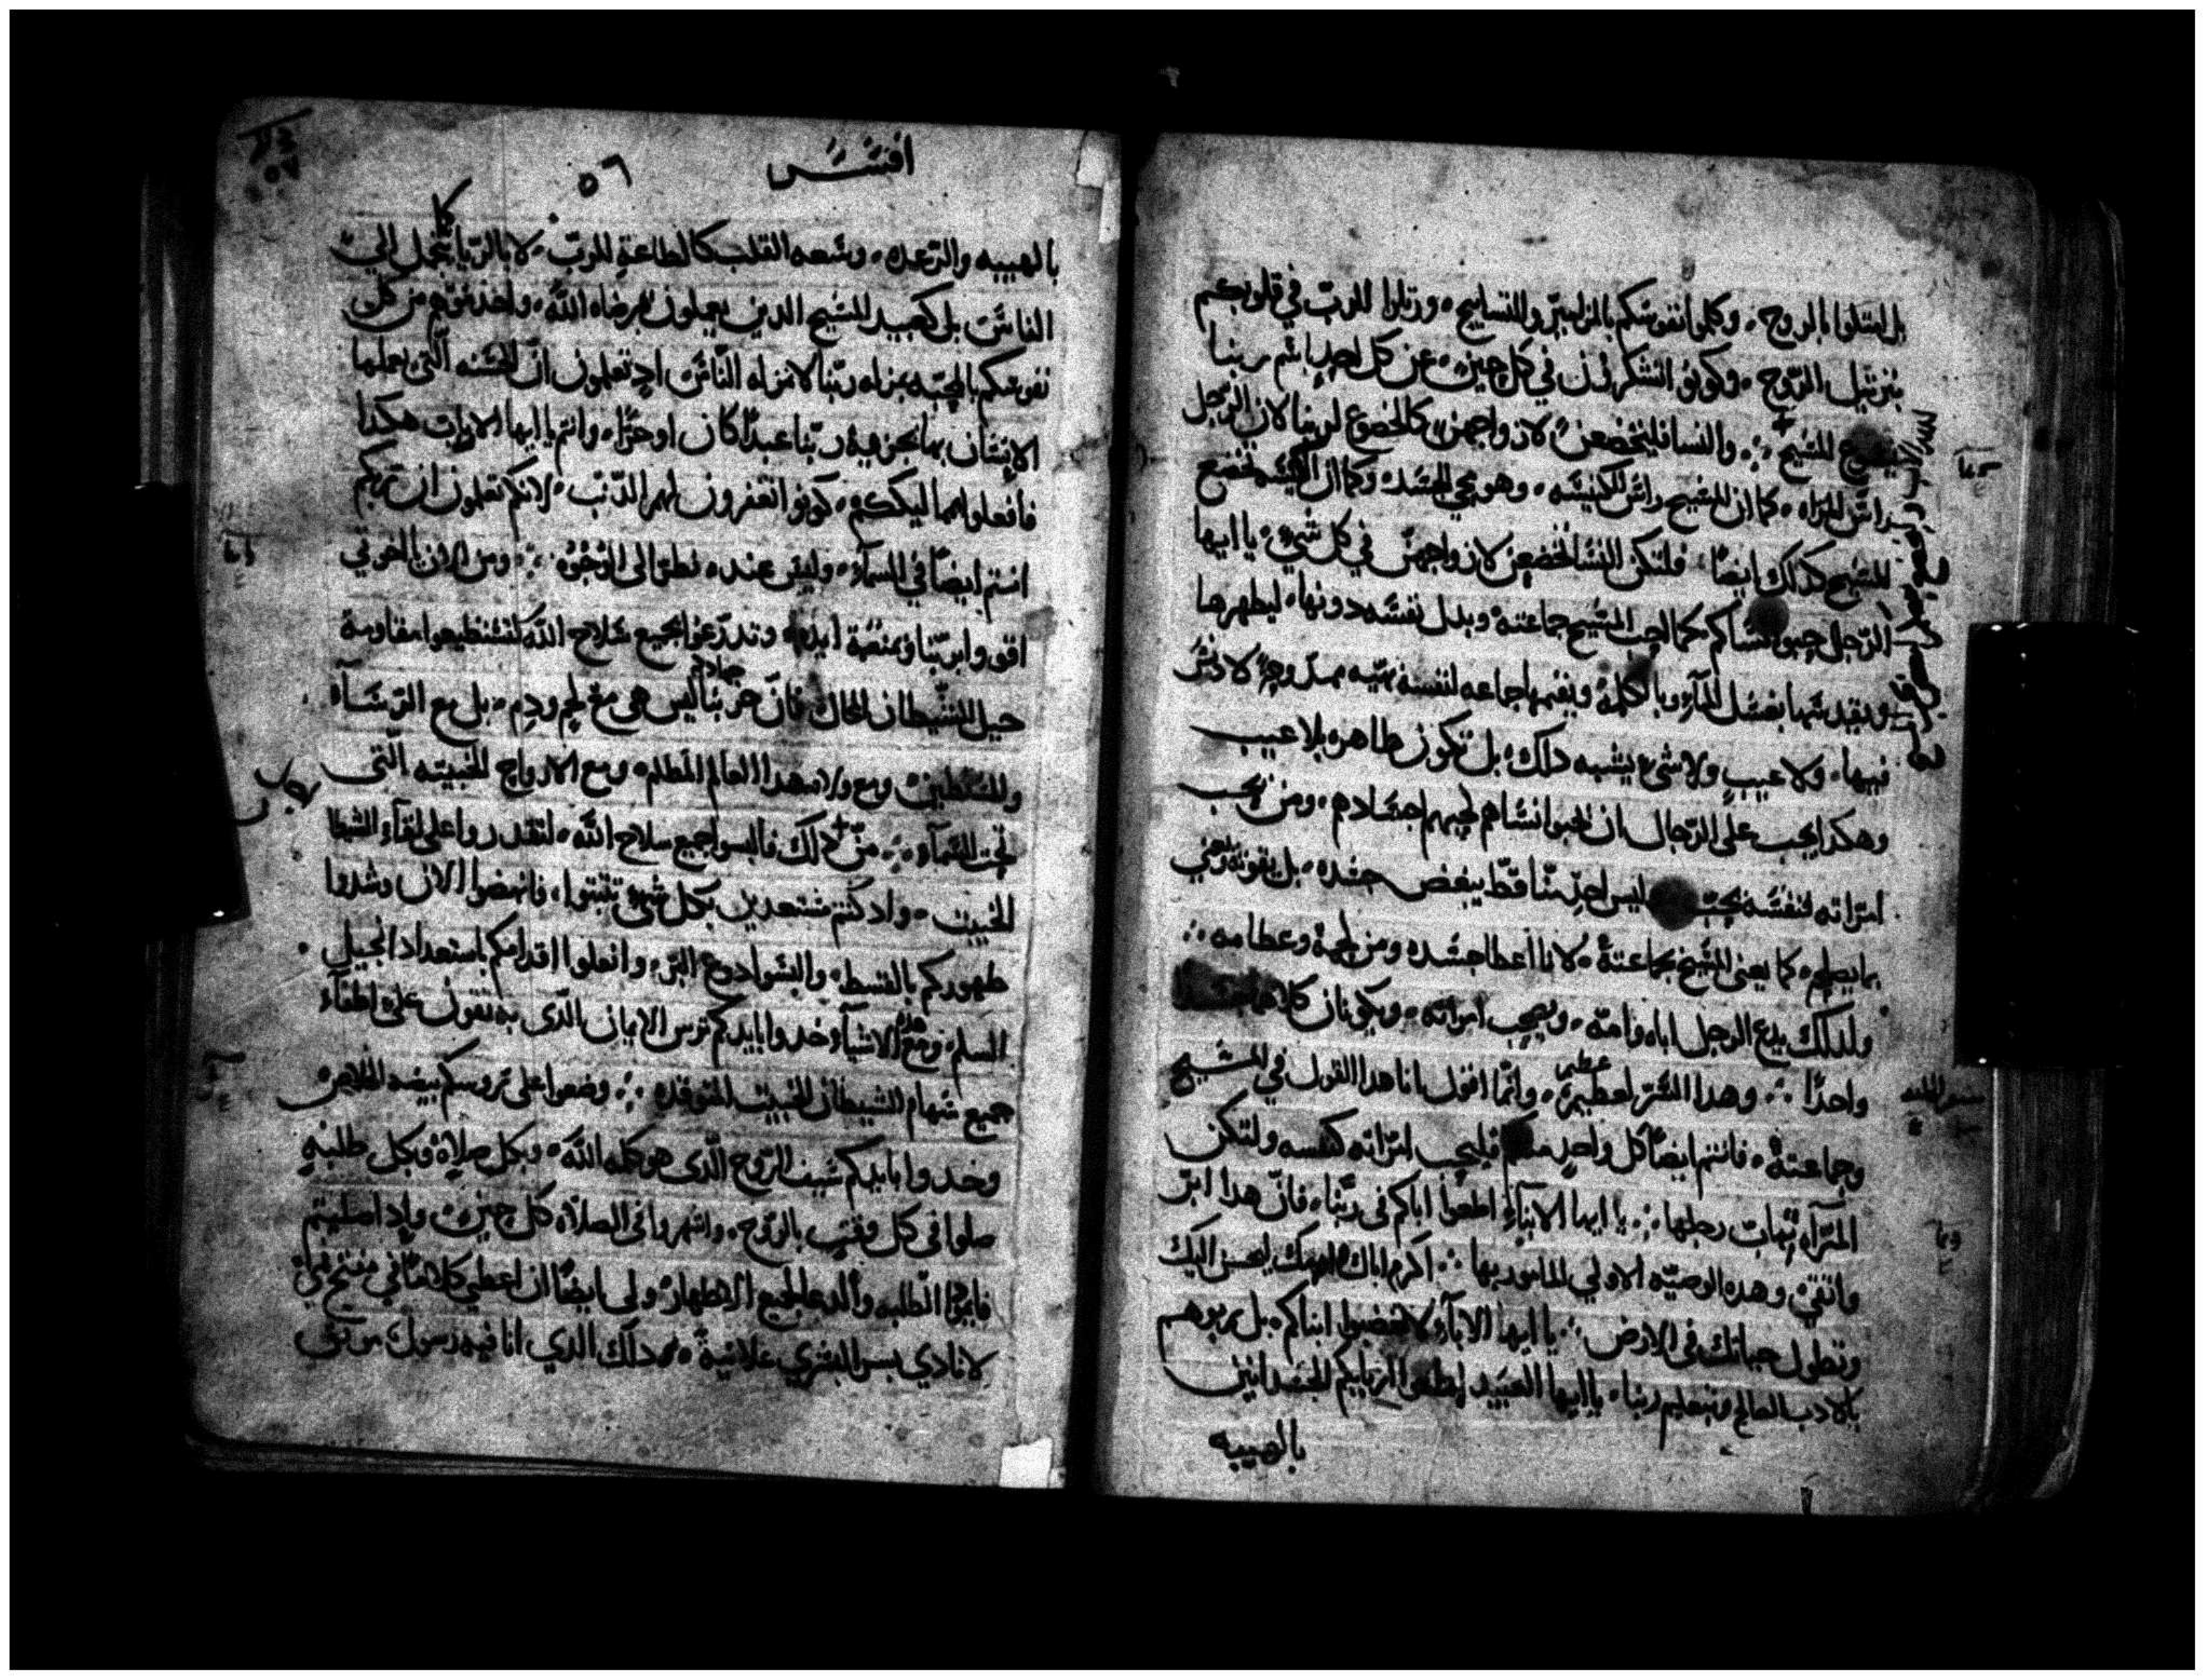 بل امتلوا بالروح، وكلموا نفوسكم بالمزامير والتسابيح، ورتلوا للرب في قلوبكم
بترتيل الروح، وكونوا تشكرون في كل حين، عن كل احد باسم ربنا
يسوع المسيح ⁘ والنسا فليخضعن لازواجهن كالخضوع لربنا لان الرجل
راس المراه، كما ان المسيح راس للكنيسه، وهو محيي الجسد، وكما ان الكنيسه تخضع
للمسيح كدلك ايضا، فلتكن النسا تخضعن لازواجهن في كل شي، يا ايها
الرجل حبوا نساكم كما احب المسيح جماعته وبدل نفسه دونها، ليطهرها
ويقدسها بغسل المآء وبالكلمة ويقيمها جاعه لنفسه بهيه ممدوحه لا دنس
فيها، ولا عيب ولا شي يشبه دلك، بل تكون طاهره بلا عيب
وهكدا يجب على الرجال ان يحبوا نساهم كحبهم اجسادهم، ومن يحب
امراته لنفسه يحب ليس احد منا قط يبغض جسده، بل يقوته ويعني
بما يصلحه كما يعنى المسيح بجماعتة، لانا اعضا جسده ومن لحمة وعظامه ⁘
ولدلك يدع الرجل اباه وامه، ويصحب امراته، ويكونان كلاهما
واحدا ⁘ وهدا السر لعظيم، وانما اقول انا هدا القول في المسيح
وجماعتة، فانتم ايضا كل واحد منكم فليحب امراته كنفسه ولتكن
المرآه تهاب رجلها ⁘ يا ايها الابنآء اطيعوا اباكم في ربنا، فان هدا ابر
واتقي، وهده الوصيه الاولي المامور بها ⁘ اكرم اباك وامك، ليحسن اليك
وتطول حياتك في الارض ⁘ يا ايها الابآء لا تغضبوا ابناكم، بل ربوهم
بالادب الصالح وبتعليم ربنا، يا ايها العبيد اطيعوا اربابكم الجسدانيين
بالهيبه
افسس
٥٦
بالهيبه والرعده، وسعه القلب كالطاعة للرب، لا بالريا كما تجمل الي
الناس بل كعبيد المسيح الدين يعملون بمرضاه الله، واخدموهم من كل
نفوسكم بالمحبه بمنزله ربنا لا بمنزله الناس اد تعلمون ان الحسنه التي يعملها
الانسان بها يجزيه ربنا عبدا كان او حرا، وانتم يا ايها الارباب هكدا
فافعلوا بمماليككم، كونوا تغفرون لهم الدنب، لانكم تعلمون ان ربكم
انتم ايضا في السمآء، وليس عنده نظر الى الوجوه ⁘ ومن الان يا اخوتي
اقووا بربنا وبمنعة ايده وتدرعوا بجميع سلاح الله لتستطيعوا مقاومة
حيل الشيطان المحال فان حربنا جهادكم ليس هي مع لحم ودم، بل مع الروسآء
والمسلطين ومع ولاه هدا العالم المظلم، ومع الارواح الخبيثه التي
تحت السمآء ⁘ من دلك فالبسوا جميع سلاح الله، لتقدروا على لقآء الشيطا
الخبيث، واد كنتم مستعدين بكل شي تثبتوا، فانهضوا الان وشدوا
ظهوركم بالقسط، والبسوا دروع البر، وانعلوا اقدامكم باستعداد انجيل
السلم، ومع هده الاشيآ وخدوا بايديكم ترس الايمان الدى به تقوون على اطفآء
جميع سهام الشيطان الخبيث المتوقده ⁘ وضعوا على روسكم بيضه الخلاص
وخدوا بايديكم سيف الروح الدى هو كلمه الله، وبكل صلاة وبكل طلبه
صلوا في كل وقت بالروح، واسهروا في الصلاه كل حين، واد اصليتم
فاديموا الطلبه والدعا لجميع الاطهار، ولي ايضا ان اعطي كلاما في مفتح فمي
لانادي بسر البشري علانية، دلك الدي انا فيه رسول موثق